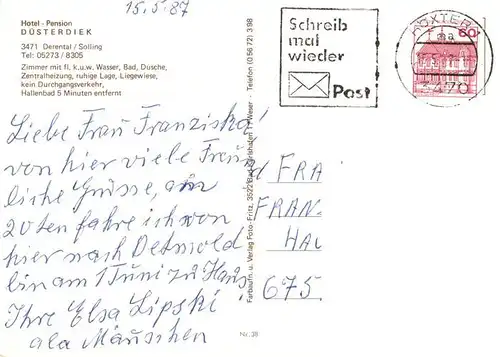 15.5.87
Hotel - Pension
DÜSTERDIEK
3471 Derental / Solling
Tel: 05273 / 8305
Zimmer mit fl. k.u.w. Wasser, Bad, Dusche,
Zentralheizung, ruhige Lage, Liegewiese,
kein Durchgangsverkehr,
Hallenbad 5 Minuten entfernt
Schreib
mal
wieder
Post
HÖXTER
ma
3470
60
Liebe Frau Franziska!
von hier viele Freu
liche Grüsse, am
20ten fahre ich von
hier nach Detmold
bin am 1 Juni zu Haus
Ihre Elsa Lipski
ala Mäuschen
Farbaufn. u. Verlag Foto-Fritz, 3522 Bad Karlshafen / Weser - Telefon (0 56 72) 3 98
Nr. 38
d FRA
FRAN
HAL
675